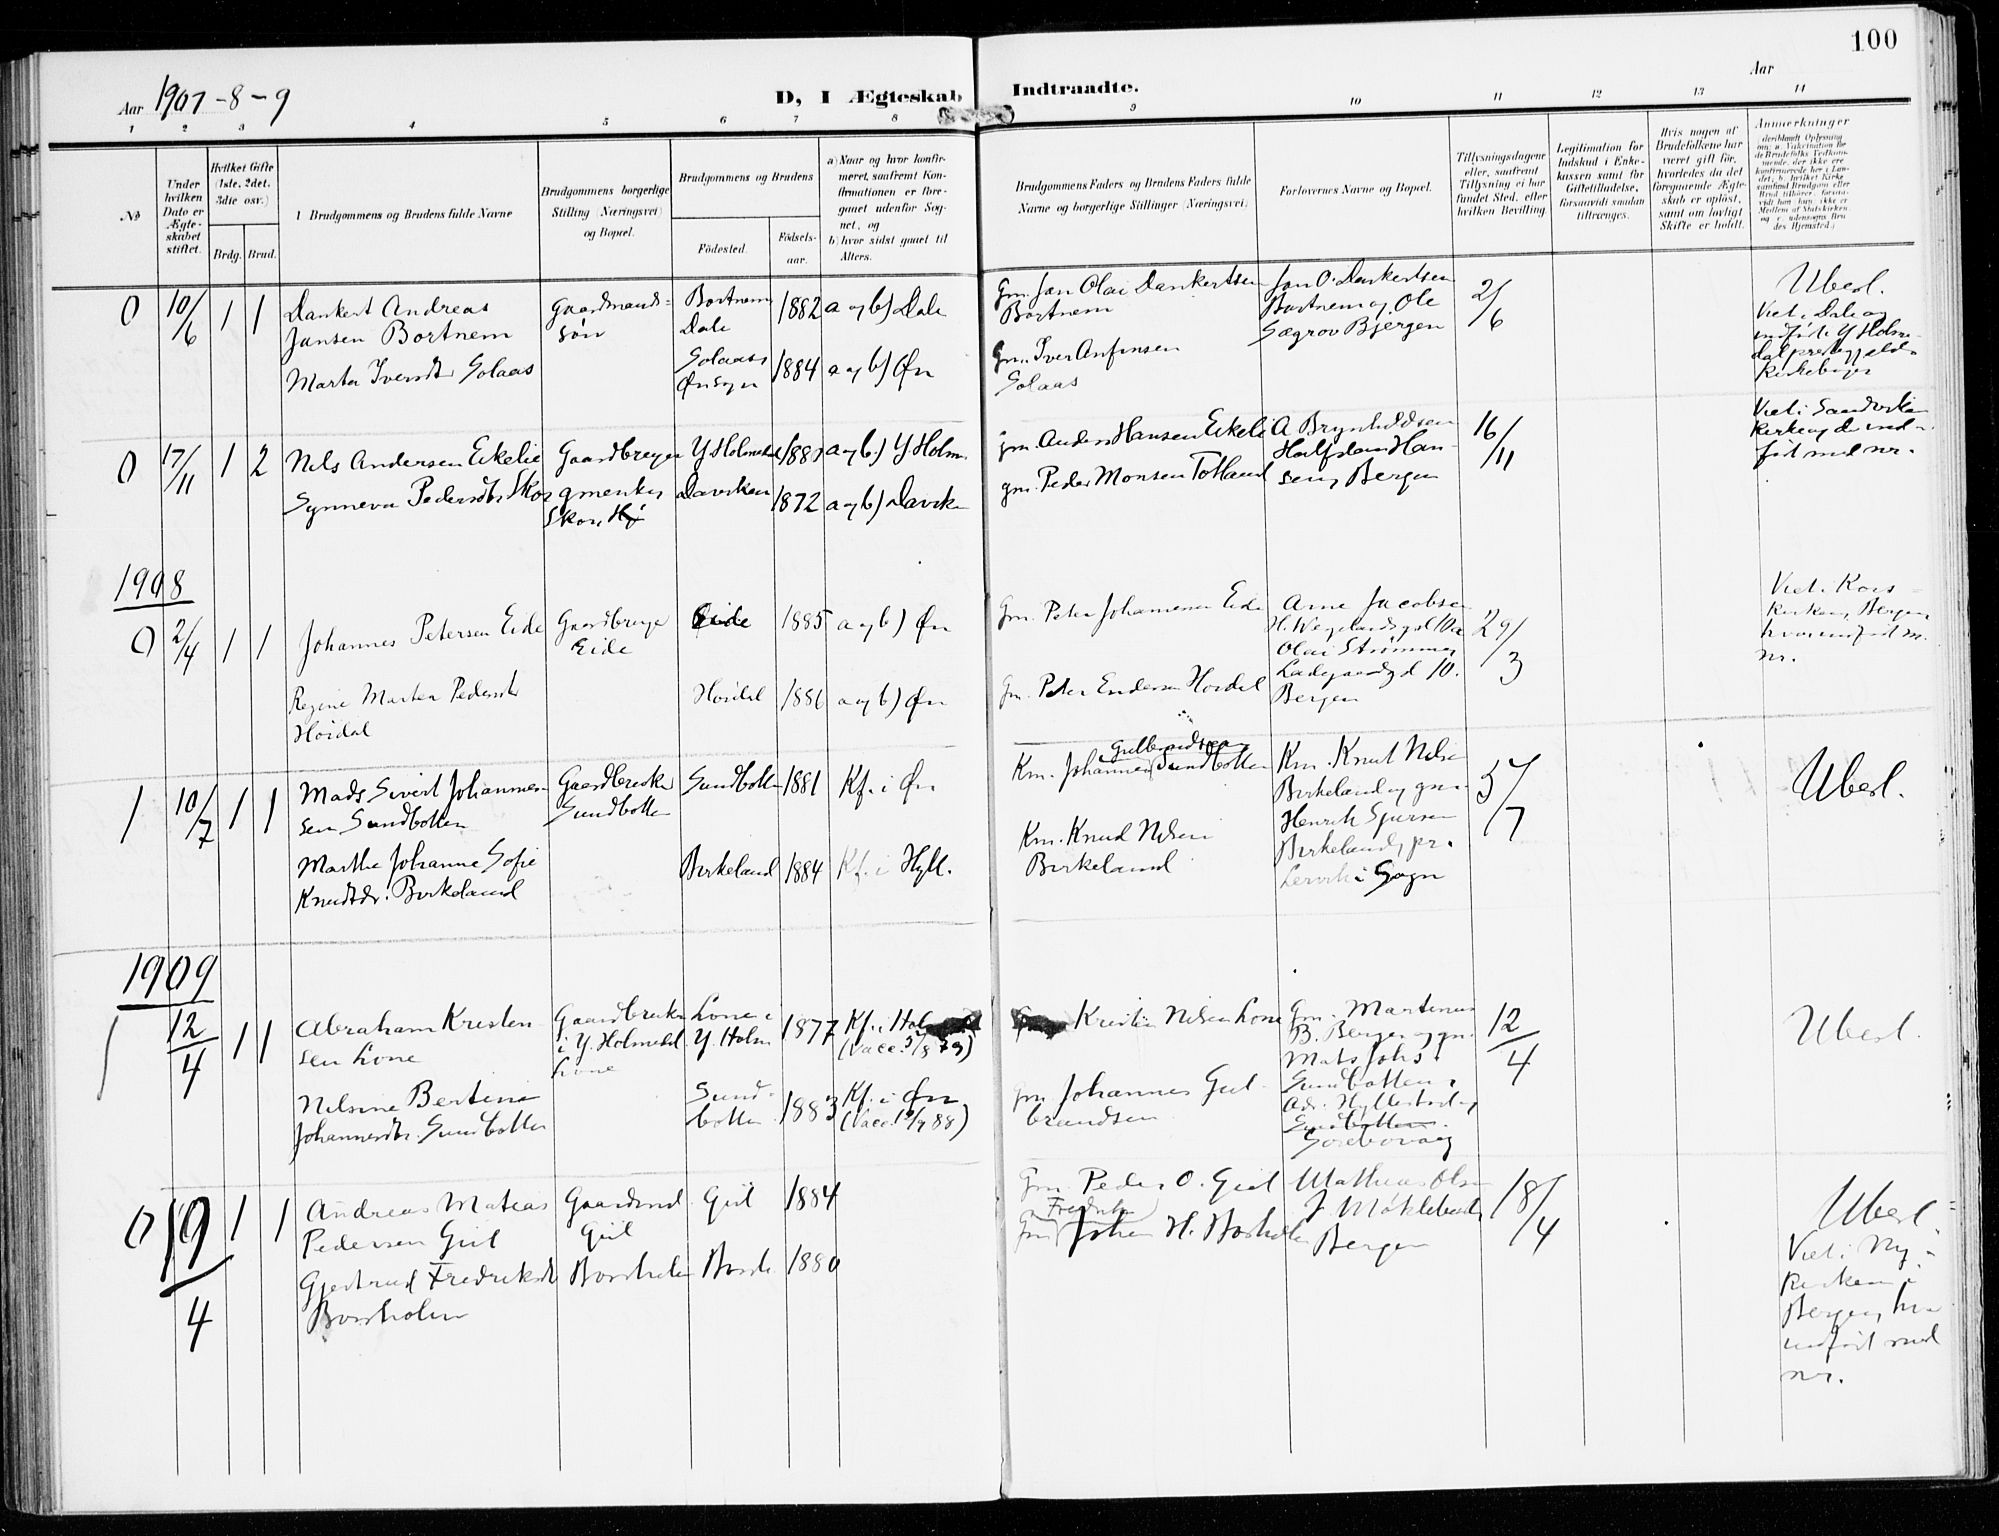 100
Aar 1907-8-9
D, I Ægteskab Indtraadte.
Aar
1 2 3 4 5 6 7 8 9 10 11 12 13 14
No
Under hvilken Dato er Ægteskabet stiftet.
Hvilket Gifte (1ste, 2det, 3die osv.)
Brdg. Brud.
Brudgommens og Brudens fulde Navne
Brudgommens borgerlige Stilling (Næringsvei) og Bopæl.
Brudgommens og Brudens
Födested.
Födsels-aar.
a) Naar og hvor konfirmeret, saafremt Konfirmationen er foregaaet udenfor Sognet, og
b) hvor sidst gaaet til Alters.
Brudgommens Faders og Brudens Faders fulde Navne og borgerlige Stillinger (Næringsvei)
Forlovernes Navne og Bopæl.
Tillysningsdagene eller, saafremt Tillysning ei har fundet Sted, efter hvilken Bevilling.
Legitimation for Indskud i Enkekassen samt for Giftetilladelse, forsaavidt saadan tiltrænges.
Hvis nogen af Brudefolkene har været gift för, hvorledes da det foregaaende Ægteskab er oplöst, samt om lovligt Skifte er holdt.
Anmerkninger
0 10/6 1 1
Dankert Andreas
Jansen Bortnem
Marta Iversdtr Solaas
Gaardmands-
sön
Bortnem
Dale
Solaas
Ønsogn
1882
1884
a og b) Dale
a og b) Øn
Gm. Jan Olai Dankertsen
Bortnem
Gm. Iver Anfinsen
Solaas
Jan O. Dankertsen
Bortnem og Ole
Sægrov Bjergen
2/6
Uberl.
Viet i Dale og
indført i Y Holme-
dal prestegjelds
Kirkebøger
0 17/11 1 2
Nils Andersen Eikelie
Synneva Pedersdtr Skor
Gaardbruger
Y Holmedal
Davıken
1872
a og b) Y Holm.
a og b) Davik
gm. Anders Hansen Eikeli
gm. Peder Monsen Totland
A Brynhildsen
Halfdan Han-
sen, Bergen
16/11
Viet i Sandviken
Kirke og der ind-
ført med nr.
1908
0 2/4 1 1
Johannes Petersen Eide
Regine Marta Pedersdtr
Høidal
Gaardbruger
Eide
Eide
Høidal
1885
1886
a og b) Øn
a og b) Øn
Gm. Peter Johannesen Eide
Gm. Peter Endersen Høidal
Arne Jacobsen
H. Wergelandsgd 10a
Olai Strømmen
Ladegaardsgd 10.
Bergen
29/3
Viet i Kors-
kirken, Bergen,
hvor indført m.
nr.
1 10/7 1 1
Mads Sivert Johannes-
sen Sundbotten
Marthe Johanne Sofie
Knudtdr. Birkeland
Gaardbruker
Sundbotten
Sundbotten
Birkeland
1881
1884
Kf. i Øn
Kf. i Hyll.
Gulbrandsen
Km. Johannes Sundbotten
Km. Knud Nilsen
Birkeland
Km. Knut Nilsen
Birkeland og gm.
Henrik Sjursen
Birkeland, pr.
Lervik i Sogn
5/7
Uberl.
1909
1 12/4 1 1
Abraham Kristen-
sen Lone
Nilsine Bertine
Johannesdtr. Sundbotten
Gaardbruker
i Y. Holmedal
Lone
Lone i
Y. Holm
Sund-
botten
1877
1883
Kf. i Hol
(Vacc. 5/8 79)
Kf. i Øn
(Vacc. 12/9 88)
Kristen Nilsen Lone
Gm. Johannes Gul-
brandsen
Gm. Martinus
B. Berger og gm.
Mats Johs.
Sundbotten,
Adr. Hyllestad og
Sundbotten.
Sørebøvaag
12/4
Uberl.
0 19/4 1 1
Andreas Mateas
Pedersen Giil
Gjertrud Fredriksdtr
Borsholm
Gaardmd
Giil
Borsholm
Giil
1884
1880
Gm. Peder O. Giil
Fredrik
Gm. Johan H. Borsholm
Mathias Olsen
J. Møklebust,
Bergen
18/4
Uberl.
Viet i Ny-
kirken i
Bergen, hvor
indført med
nr.